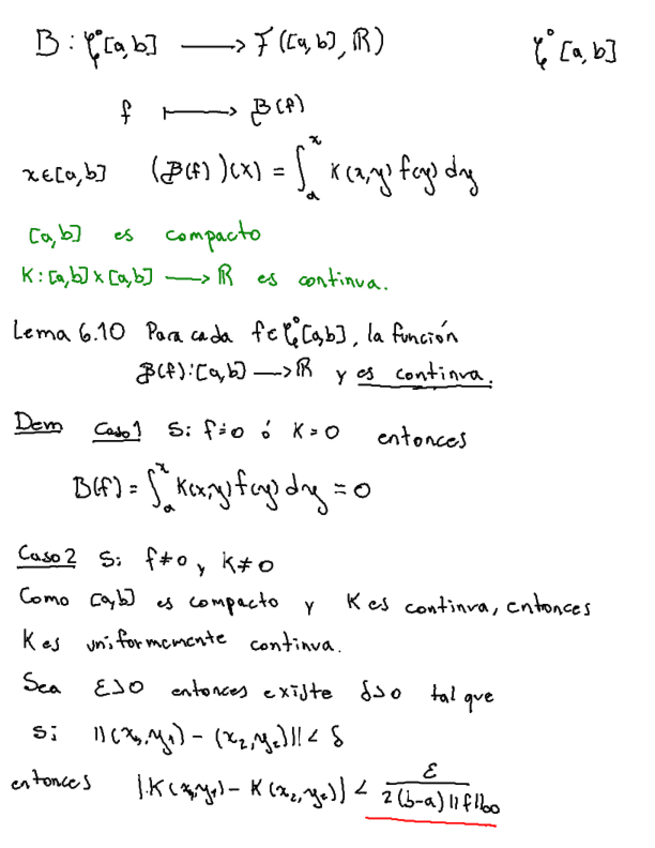 B : 𝒞⁰[a,b] ⟶ F([a,b], ℝ) 𝒞⁰[a,b]
f ⟼ B(f)
x∈[a,b] (B(f))(x) = ∫ₐˣ K(x,y) f(y) dy
[a,b] es compacto
K : [a,b] x [a,b] ⟶ ℝ es continua.
Lema 6.10 Para cada f∈𝒞⁰[a,b], la función
B(f) : [a,b] ⟶ ℝ y es continua.
Dem Caso 1 Si f=0 ó K=0 entonces
B(f) = ∫ₐˣ K(x,y) f(y) dy = 0
Caso 2 Si f≠0 y K≠0
Como [a,b] es compacto y K es continua, entonces
K es uniformemente continua.
Sea ε>0 entonces existe δ>0 tal que
si ||(x₁,y₁) - (x₂,y₂)|| < δ
entonces |K(x₁,y₁) - K(x₂,y₂)| < ε / 2(b-a)||f||∞